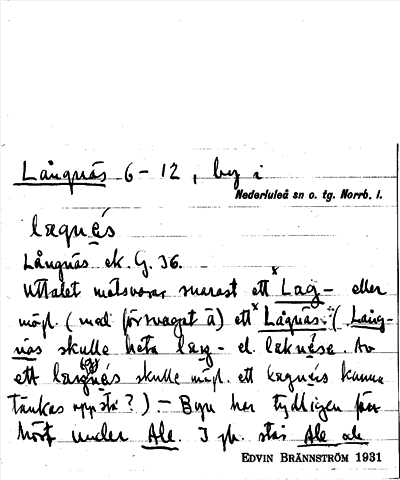 Långnäs 6-12, by i
Nederluleå sn o. tg. Norrb. l.
lægnés
Långnäs ek. G. 36.
Uttalet motsvarar snarast ett *Lag- eller
möjl. (med försvagat ä) ett *Lågnäs. (Lång-
näs skulle heta læg- el. . Av
ett skulle möjl. ett lægnés kunna
tänkas uppstå?) - Byn har tydligen förr
hört under Ale. I jb. står Ale
EDVIN BRÄNNSTRÖM 1931